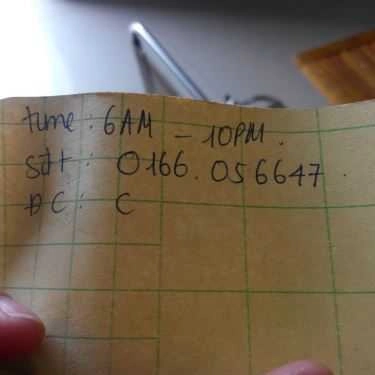 time: 6AM - 10PM.
sđt: 0166.056647.
ĐC: C